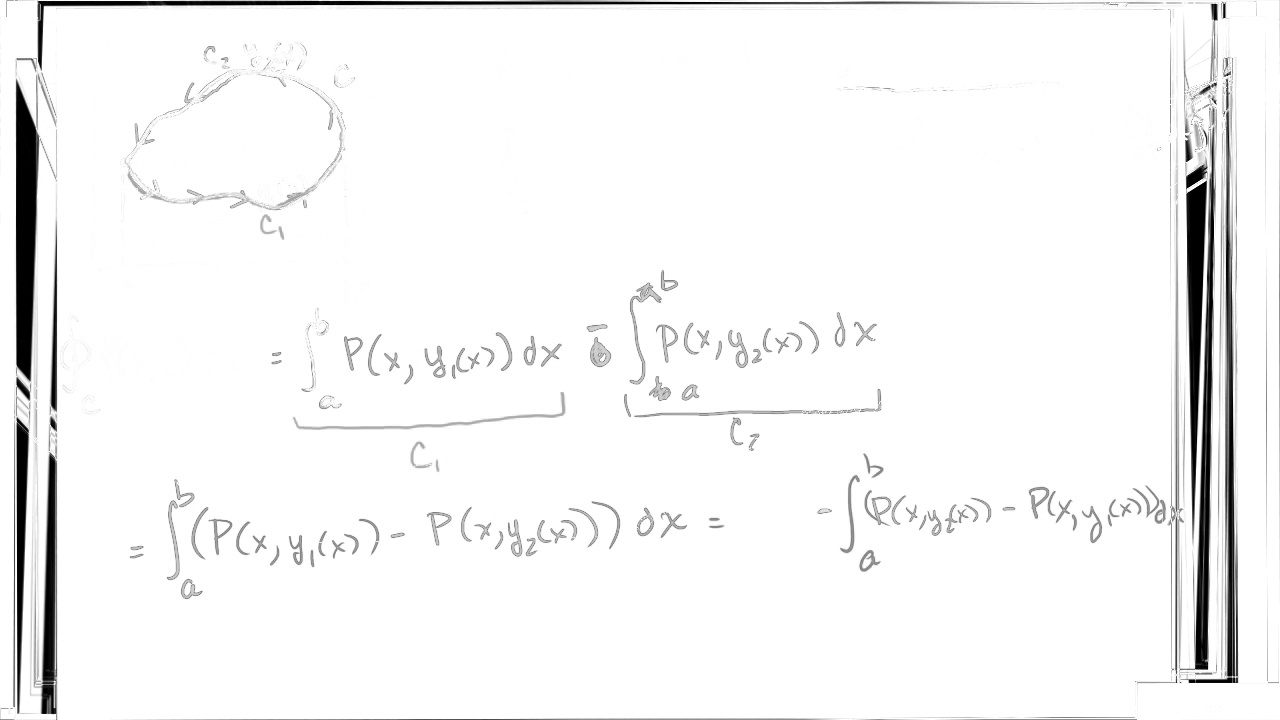 C₂ y₂(x) C
C₁
= ∫_a^b P(x, y₁(x)) dx - ∫_a^b P(x, y₂(x)) dx
C
C₁ C₂
= ∫_a^b (P(x, y₁(x)) - P(x, y₂(x))) dx = - ∫_a^b (P(x, y₂(x)) - P(x, y₁(x))) dx